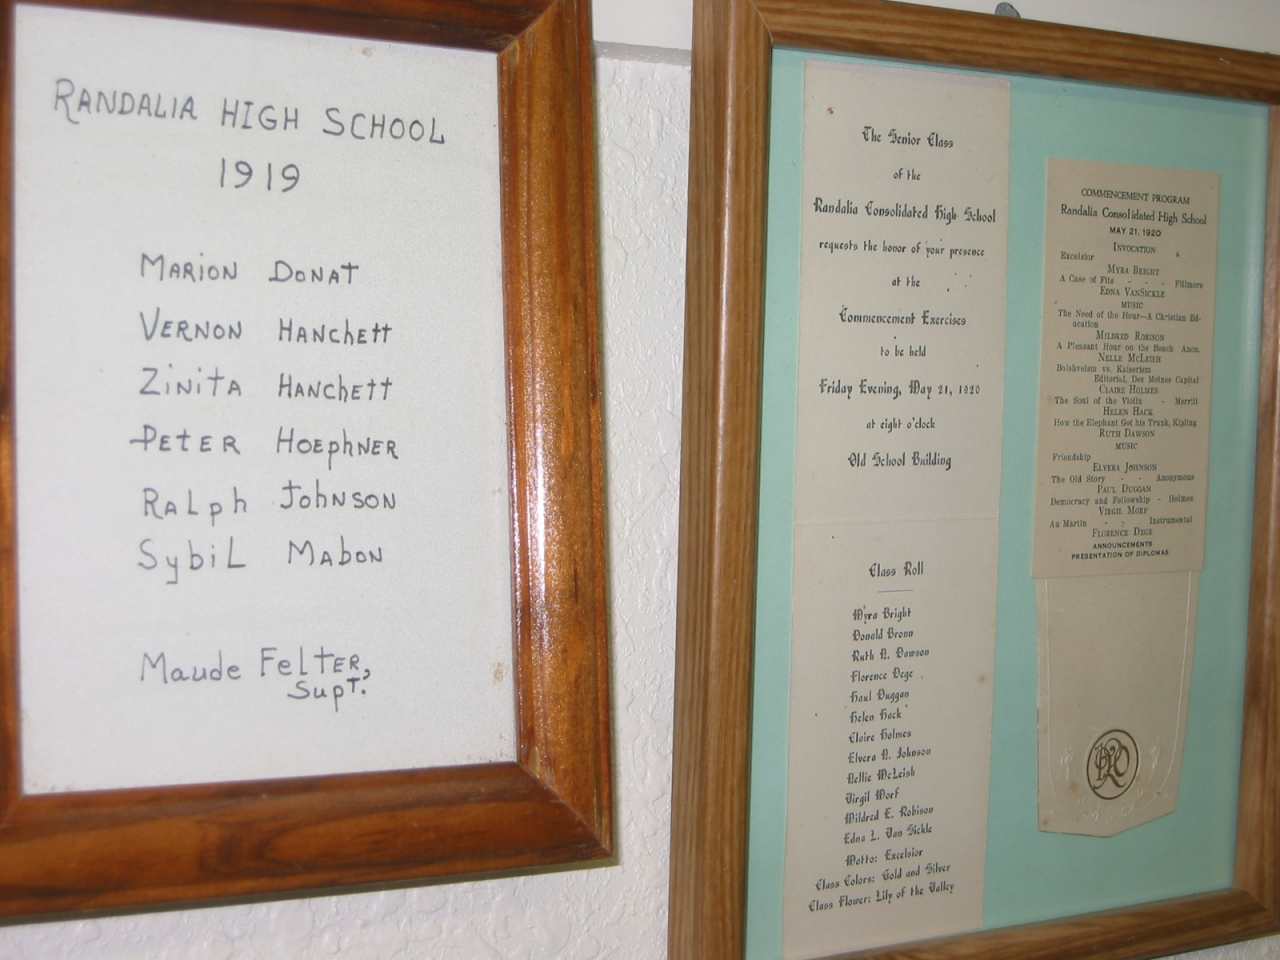 RANDALIA HIGH SCHOOL
1919
MARION DONAT
VERNON HANCHETT
ZINITA HANCHETT
PETER HOEPHNER
RALPH JOHNSON
SYBIL MABON
MAUDE FELTER,
SUPT.
The Senior Class
of the
Randalia Consolidated High School
requests the honor of your presence
at the
Commencement Exercises
to be held
Friday Evening, May 21, 1920
at eight o'clock
Old School Building
Class Roll
Myra Bright
Donald Brown
Ruth A. Dawson
Florence Dege
Paul Duggan
Helen Hack
Claire Holmes
Elvera A. Johnson
Nellie McLeish
Virgil Morf
Mildred E. Robison
Edna L. Van Sickle
Motto: Excelsior
Class Colors: Gold and Silver
Class Flower: Lily of the Valley
COMMENCEMENT PROGRAM
Randalia Consolidated High School
MAY 21, 1920
INVOCATION
Excelsior
MYRA BRIGHT
A Case of Fits - - - Fillmore
EDNA VANSICKLE
MUSIC
The Need of the Hour—A Christian Ed-
ucation
MILDRED ROBISON
A Pleasant Hour on the Beach Anon.
NELLE MCLEISH
Bolshevism vs. Kaiserism
Editorial, Des Moines Capital
CLAIRE HOLMES
The Soul of the Violin - Merrill
HELEN HACK
How the Elephant Got his Trunk, Kipling
RUTH DAWSON
MUSIC
Friendship
ELVERA JOHNSON
The Old Story - - Anonymous
PAUL DUGGAN
Democracy and Fellowship - Holmes
VIRGIL MORF
Au Martin - - Instrumental
FLORENCE DEGE
ANNOUNCEMENTS
PRESENTATION OF DIPLOMAS